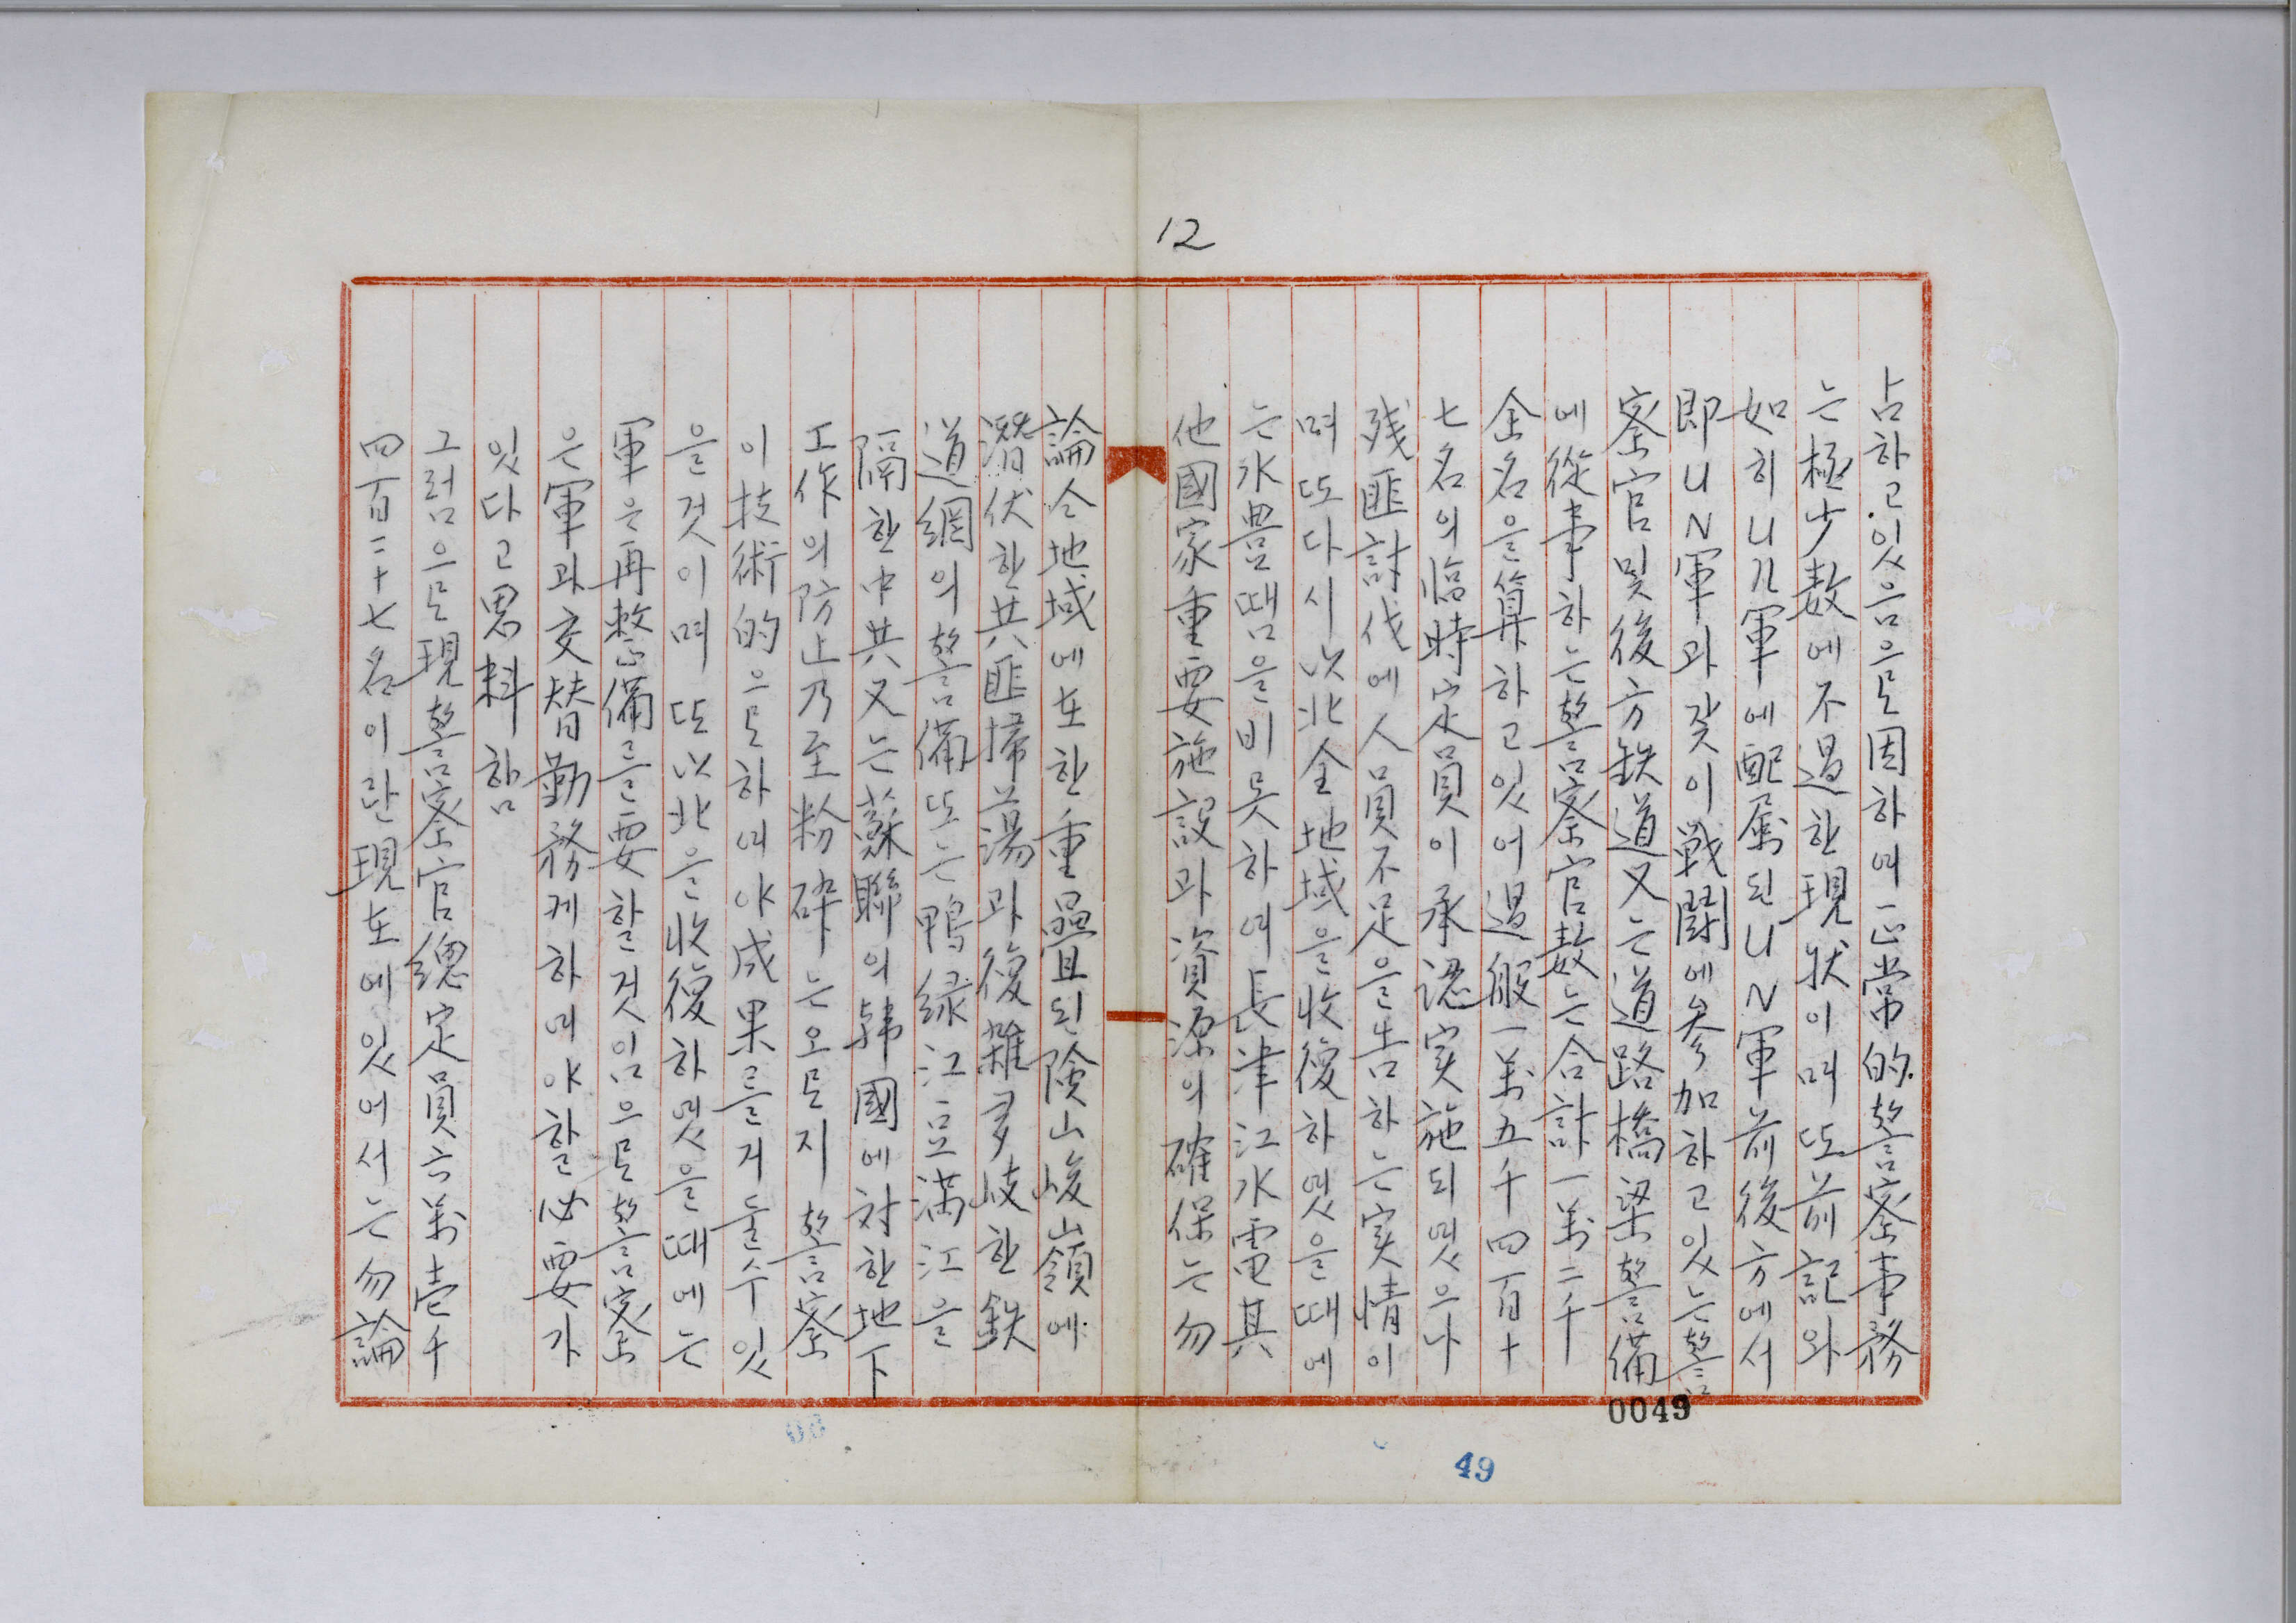 12
占하고있음으로因하여正常的警察事務
는極少数에不過한現狀이며또前記와
如히UN軍에配属된UN軍前後方에서
即UN軍과갗이戦闘에参加하고있는警
察官및後方鉄道又는道路橋梁警備
에從事하는警察官数는合計一万二千
全名을算하고있어過般一万五千四百十
七名의臨時定員이承認実施되였으나
残匪討伐에人員不足을告하는実情이
며또다시以北全地域을收復하였을때에
는水豊땜을비롯하여長津江水電其
他國家重要施設과資源의確保는勿
論仝地域에在한重疊된険山峻嶺에
潛伏한共匪掃蕩과複雜多岐한鉄
道網의警備또는鴨緑江豆満江을
隔한中共又는蘇聯의韓國에対한地下
工作의防止乃至粉碎는오로지警察
이技術的으로하여야成果를거둘수있
을것이며또以北을收復하였을때에는
軍은再整備를要할것임으로警察
은軍과交替勤務케하며야할必要가
있다고思料함
그럼으로現警察官總定員六万壱千
四百二十七名이란現在에있어서는勿論
0049
49